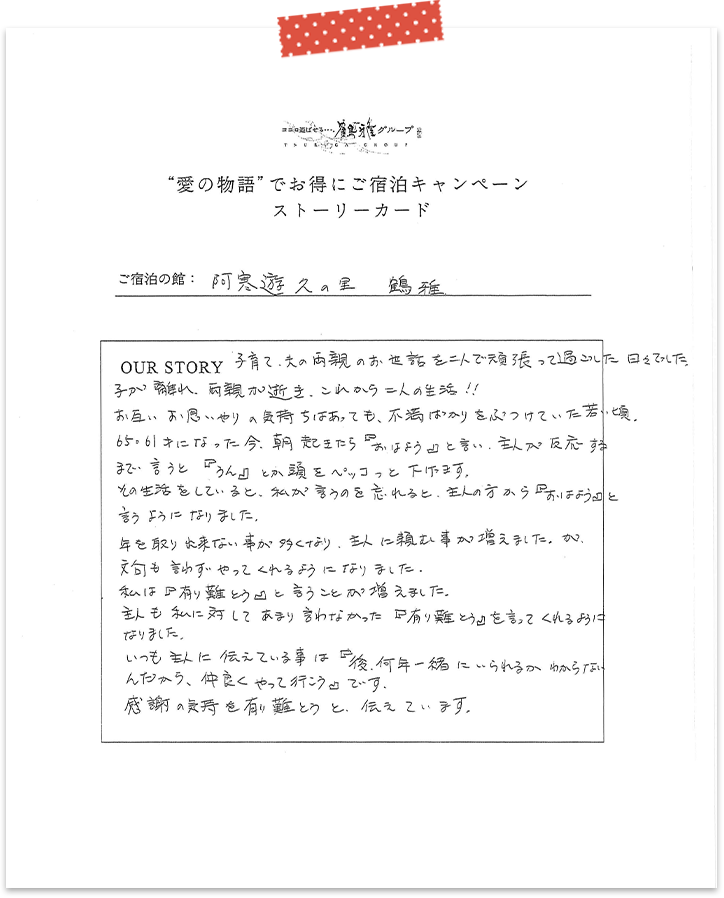 ココロ遊ばせる…。鶴雅グループ
TSURUGA GROUP
“愛の物語”でお得にご宿泊キャンペーン
ストーリーカード
ご宿泊の館： 阿寒遊久の里 鶴雅
OUR STORY 子育て、夫の両親のお世話を二人で頑張って過ごした日々でした。
子が離れ、両親が逝き、これから二人の生活!!
お互いお思いやりの気持ちはあっても、不満ばかりをぶつけていた若い頃。
65。61才になった今、朝起きたら『おはよう』と言い、主人が反応する
まで言うと『うん』とか頭をペッコっと下げます。
その生活をしていると、私が言うのを忘れると、主人の方から『おはよう』と
言うようになりました。
年を取り出来ない事が多くなり、主人に頼む事が増えました。が、
文句も言わずやってくれるようになりました。
私は『有り難とう』と言うことが増えました。
主人も私に対してあまり言わなかった『有り難とう』を言ってくれるように
なりました。
いつも主人に伝えている事は『後、何年一緒にいられるかわからない
んだから、仲良くやって行こう』です。
感謝の気持を有り難とうと、伝えています。